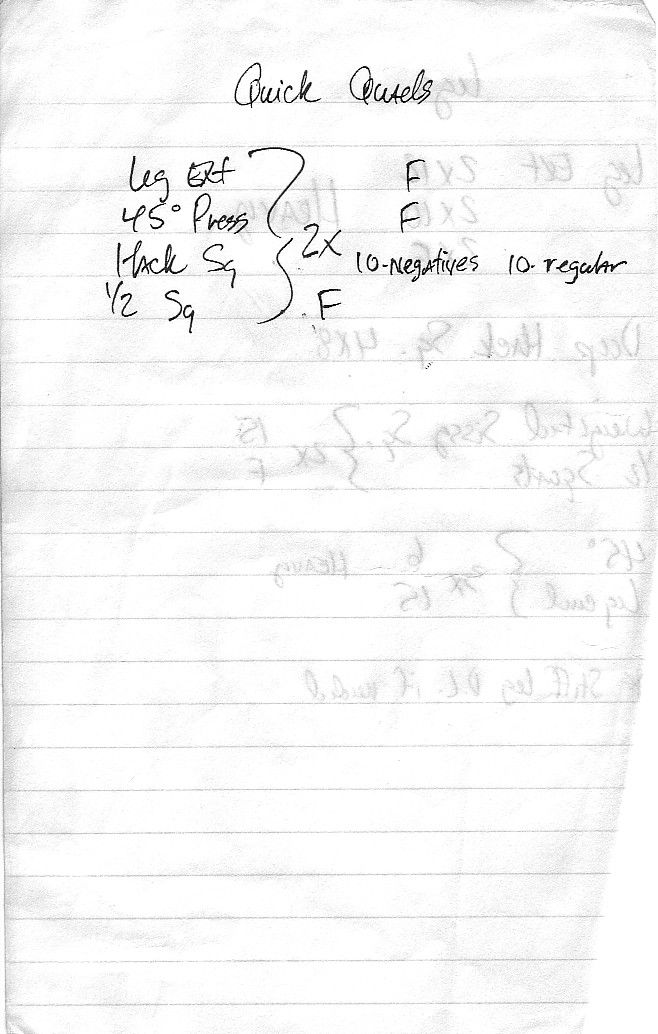 Quick Quads
Leg Ext F
45° Press F
2x
Hack Sq 10-Negatives 10-regular
1/2 Sq F